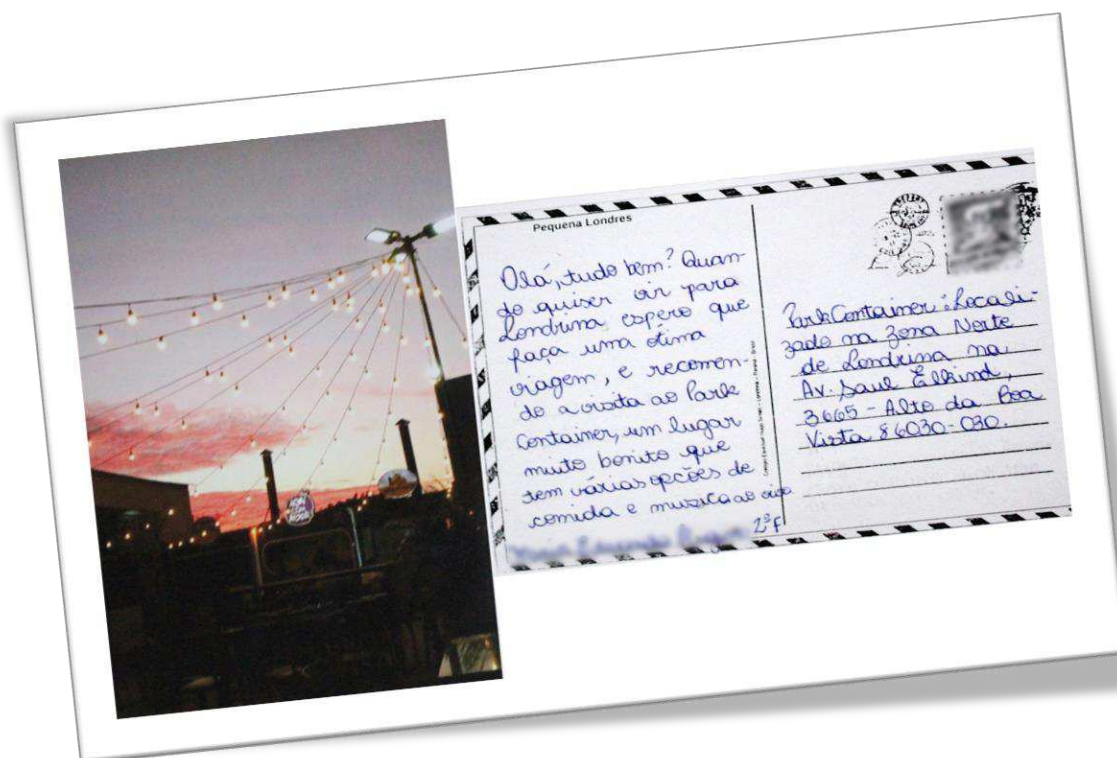 Pequena Londres
Olá, tudo bem? Quan-
do quiser vir para
Londrina, espero que
faça uma ótima
viagem, e recomen-
do a visita ao Park
Container, um lugar
muito bonito que
tem várias opções de
comida e musica ao vivo.
2ºF
Park Container: Locali-
zado na Zona Norte
de Londrina na
Av. Saul Elkind,
3665 - Alto da Boa
Vista 86030-030.